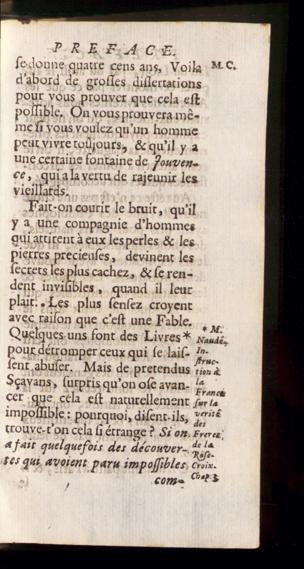 PREFACE.
se donne quatre cens ans. Voila
M. C.
d'abord de grosses dissertations
pour vous prouver que cela est
possible. On vous prouvera mê-
me si vous voulez qu'un homme
peut vivre toûjours, & qu'il y a
une certaine fontaine de Jouven-
ce, qui a la vertu de rajeunir les
vieillards.
Fait-on courir le bruit, qu'il
y a une compagnie d'hommes
qui attirent à eux les perles & les
pierres precieuses, devinent les
secrets les plus cachez, & se ren-
dent invisibles, quand il leur
plait. Les plus sensez croyent
avec raison que c'est une Fable.
Quelques uns font des Livres*
pour détromper ceux qui se lais-
sent abuser. Mais de pretendus
Sçavans, surpris qu'on ose avan-
cer que cela est naturellement
impossible: pourquoi, disent-ils,
trouve-t'on cela si étrange? Si on
a fait quelquefois des découver-
tes qui avoient paru impossibles
com-
* M.
Naudé,
In-
struc-
tion à
la
France
sur la
verité
des
Freres
de la
Rose-
Croix.
Chap. 3.